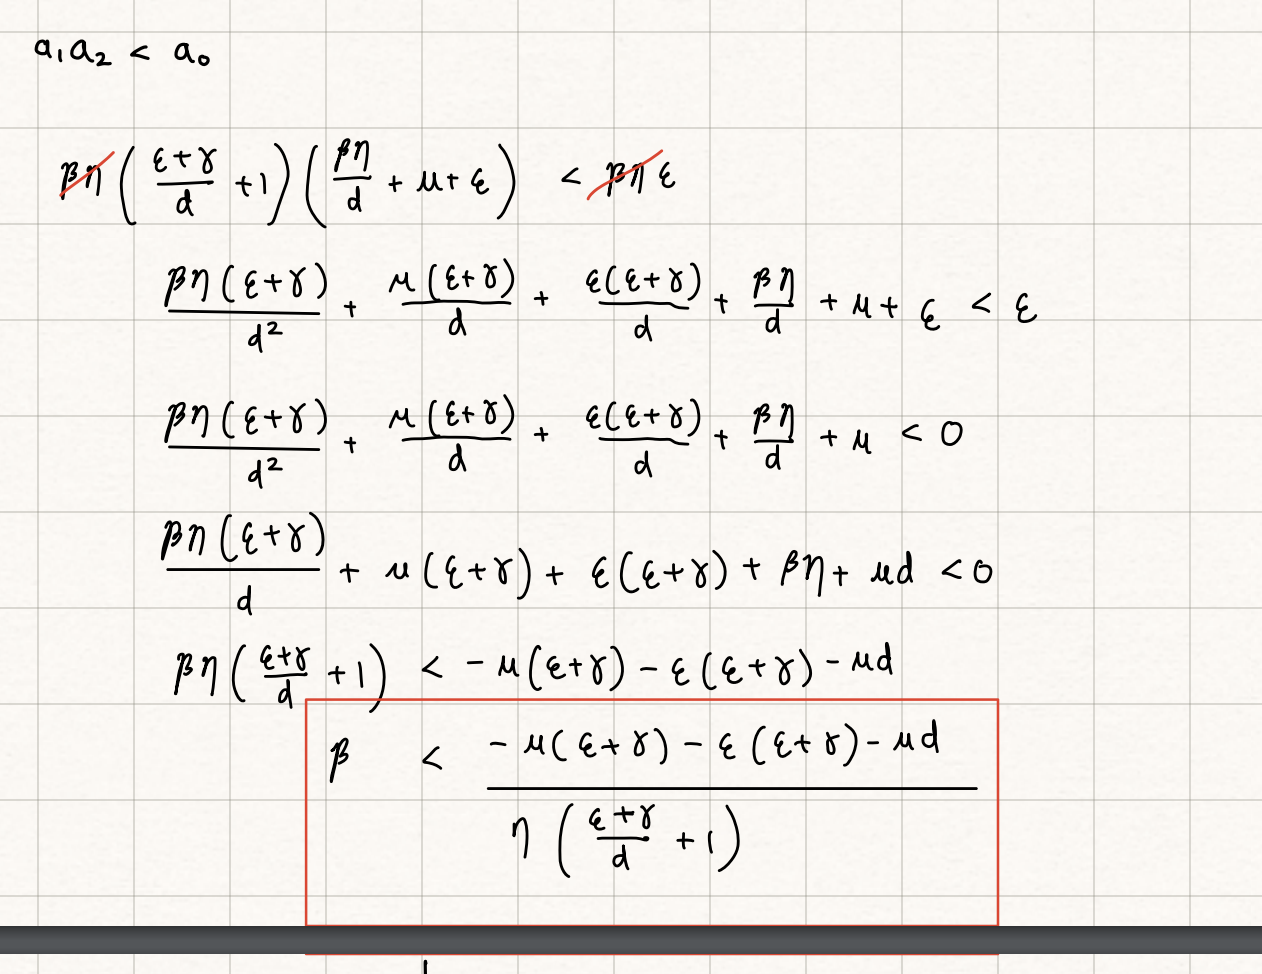 a₁a₂ < a₀
βη((ε+γ)/d + 1)(βη/d + μ + ε) < βηε
βη(ε+γ)/d² + μ(ε+γ)/d + ε(ε+γ)/d + βη/d + μ + ε < ε
βη(ε+γ)/d² + μ(ε+γ)/d + ε(ε+γ)/d + βη/d + μ < 0
βη(ε+γ)/d + μ(ε+γ) + ε(ε+γ) + βη + μd < 0
βη((ε+γ)/d + 1) < -μ(ε+γ) - ε(ε+γ) - μd
β < (-μ(ε+γ) - ε(ε+γ) - μd)/(η((ε+γ)/d + 1))